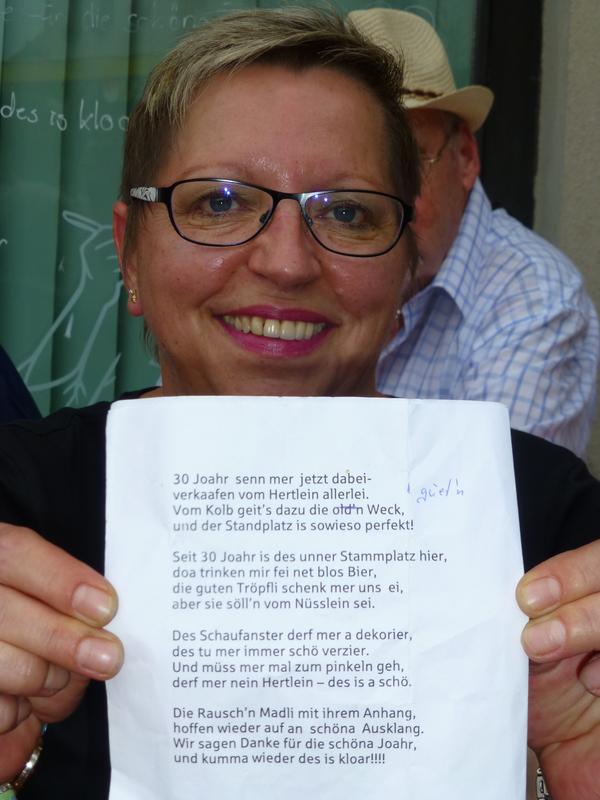 für die schöne
des is kloa
30 Joahr senn mer jetzt dabei-
verkaafen vom Hertlein allerlei.
Vom Kolb geit's dazu die old'n Weck,
und der Standplatz is sowieso perfekt!
Seit 30 Joahr is des unner Stammplatz hier,
doa trinken mir fei net blos Bier,
die guten Tröpfli schenk mer uns ei,
aber sie söll'n vom Nüsslein sei.
Des Schaufanster derf mer a dekorier,
des tu mer immer schö verzier.
Und müss mer mal zum pinkeln geh,
derf mer nein Hertlein – des is a schö.
Die Rausch'n Madli mit ihrem Anhang,
hoffen wieder auf an schöna Ausklang.
Wir sagen Danke für die schöna Joahr,
und kumma wieder des is kloar!!!!